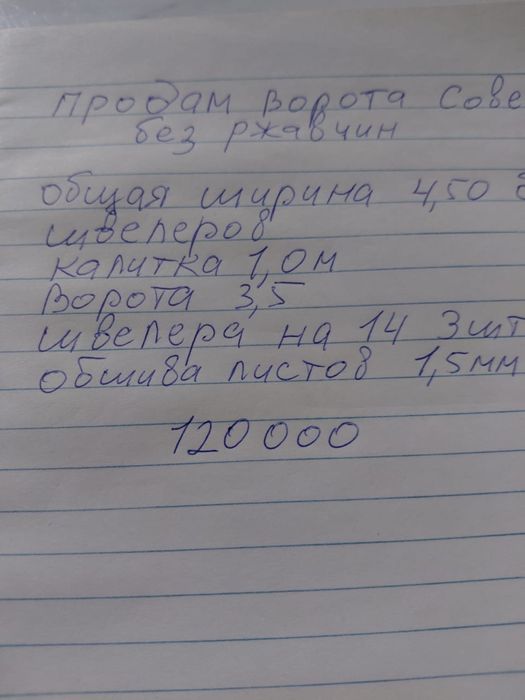 продам ворота Сове
без ржавчин
общая ширина 4,50 б
швелеров
калитка 1,0м
ворота 3,5
швелера на 14 3шт
обшива листов 1,5мм
120000